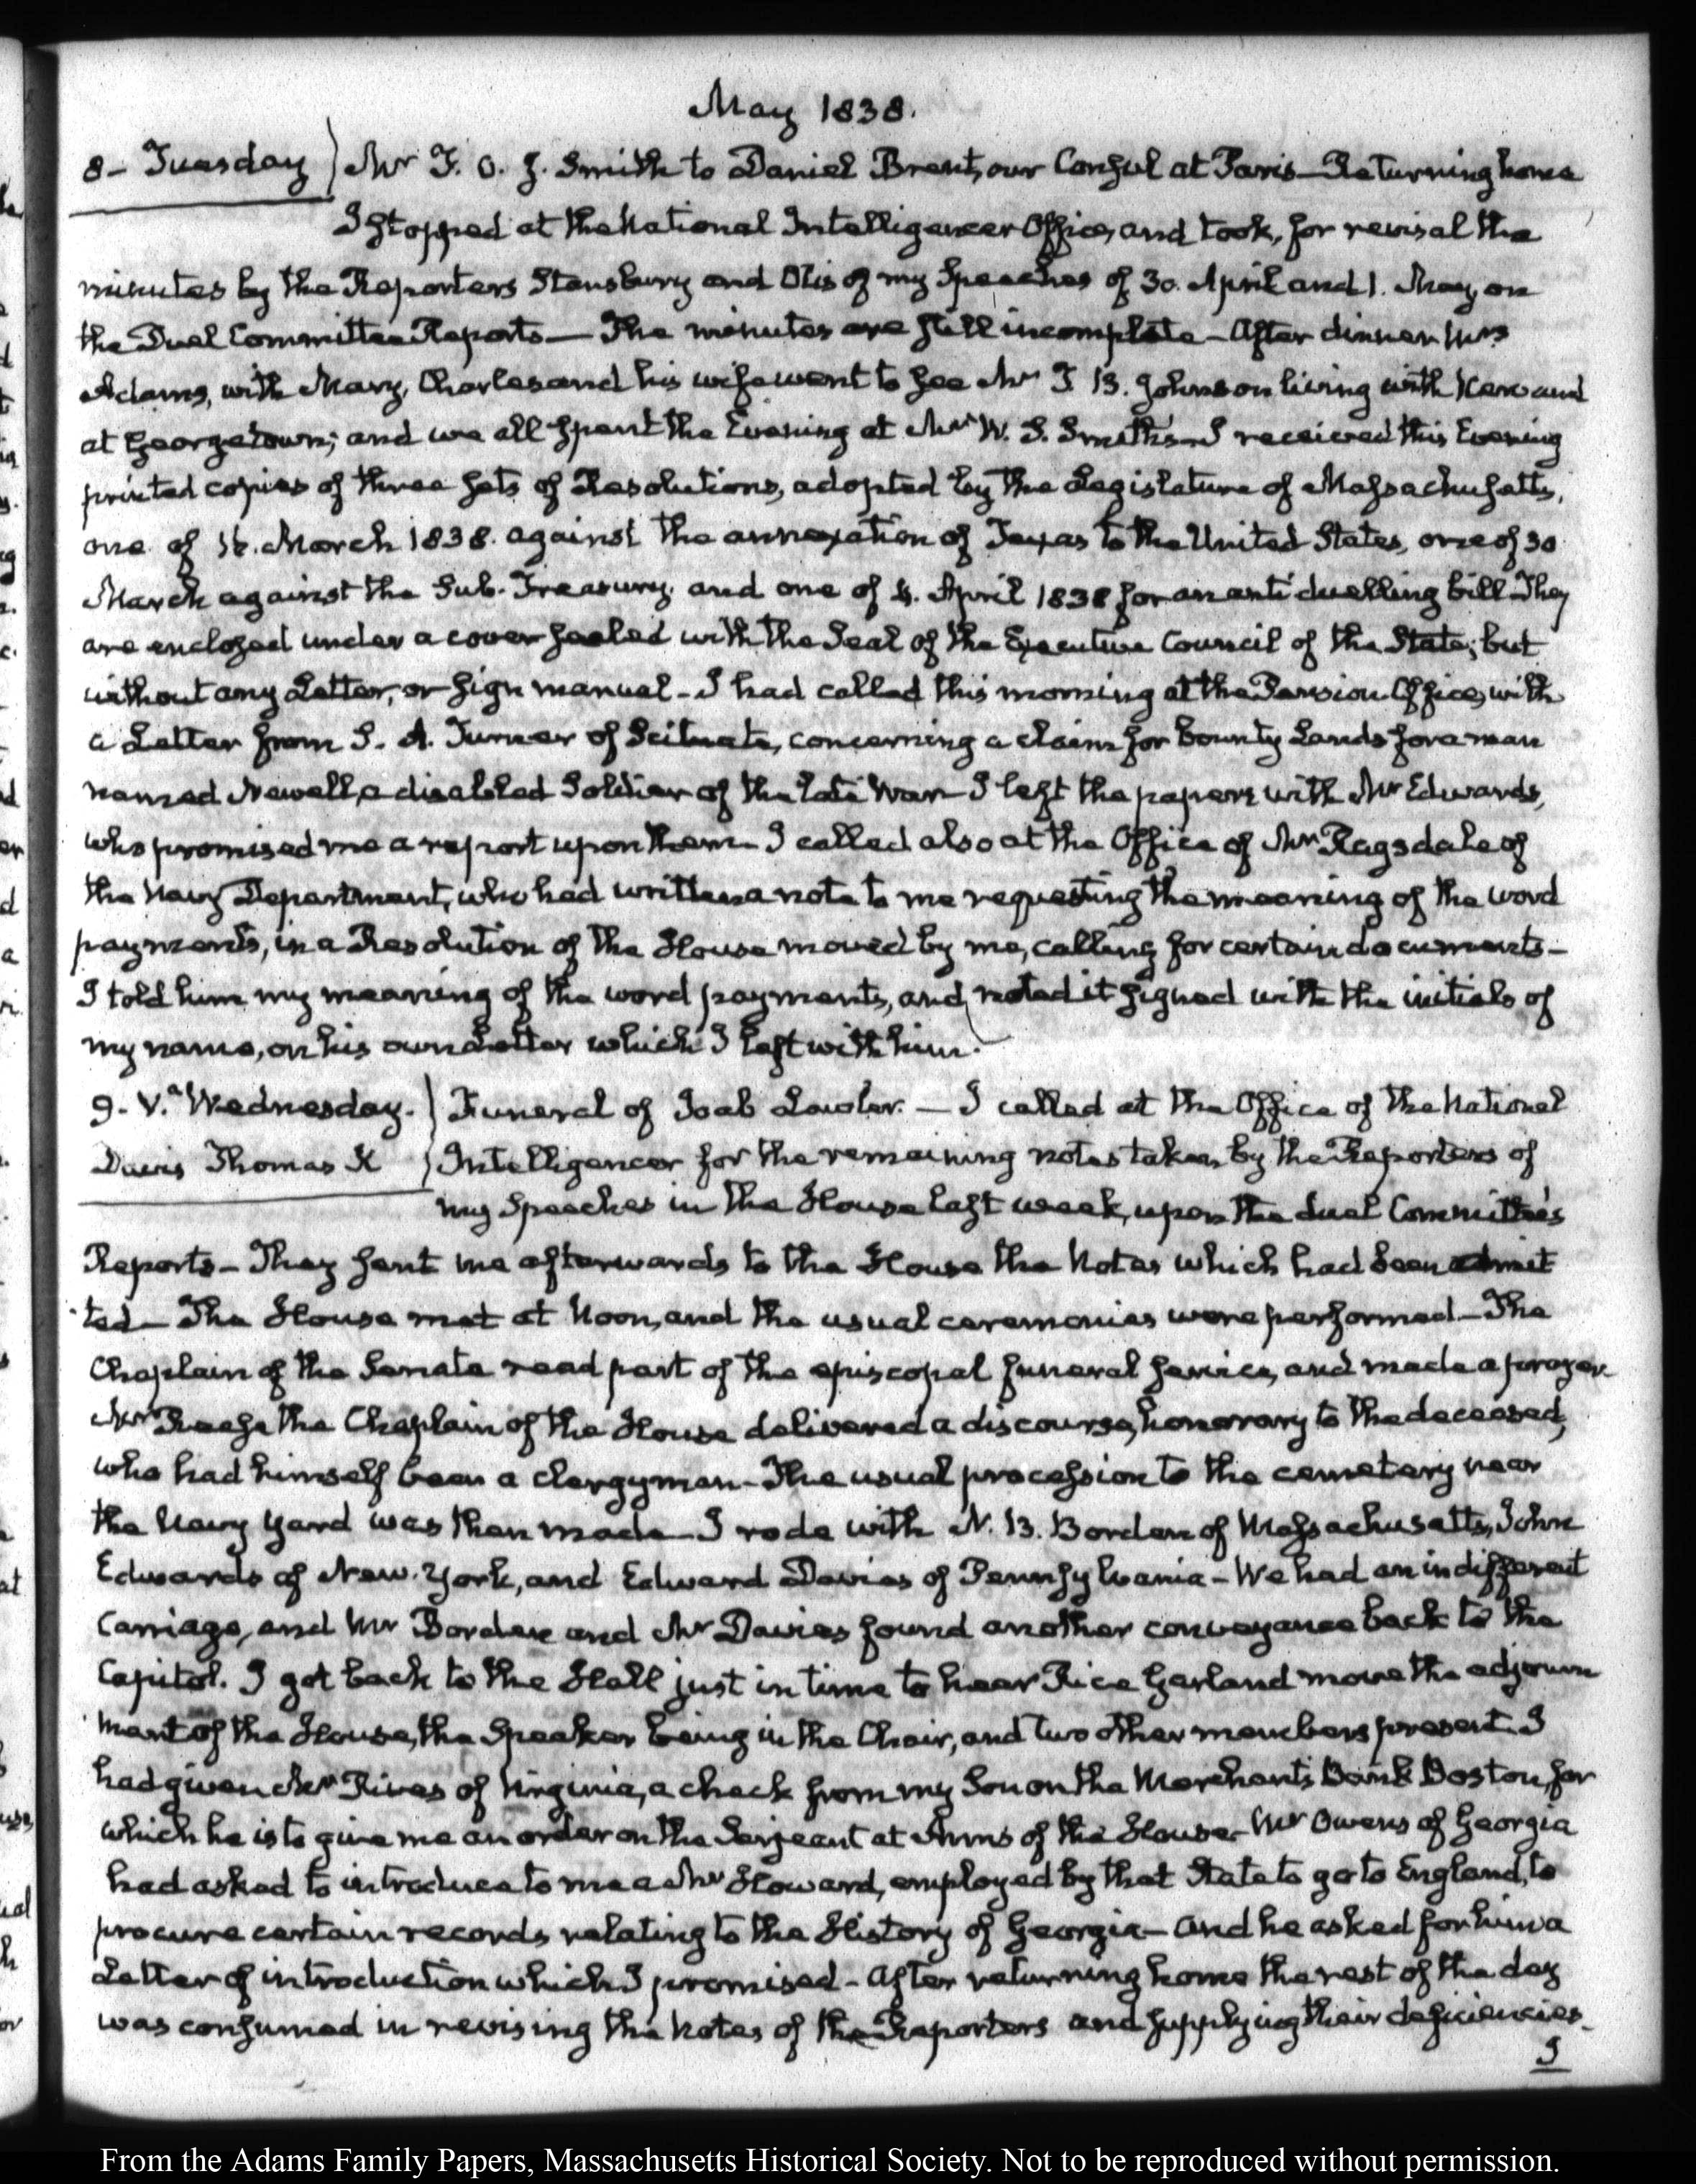 May 1838.
8- Tuesday) Mr F. O. J. Smith to Daniel Brent, our Consul at Paris—Returning home
I stopped at the National Intelligencer Office, and took, for revisal the
minutes by the Reporters Stansbury and Otis of my Speeches of 30. April and 1. May on
the Duel Committee Reports— The minutes are still incomplete— After dinner Mrs
Adams, with Mary, Charles and his wife went to see Mr T. B. Johnson living with
at Georgetown; and we all spent the Evening at Mr W. S. Smith's—I received this Evening
printed copies of three sets of Resolutions, adopted by the Legislature of Massachusetts,
one of 16. March 1838. against the annexation of Texas to the United States, one of 30
March against the Sub-Treasury, and one of 4. April 1838 for an anti duelling bill—They
are enclosed under a cover sealed with the Seal of the Executive Council of the State; but
without any Letter, or sign manual— I had called this morning at the Pension Office, with
a Letter from S. A. Turner of Scituate, concerning a claim for bounty Lands for a man
named Newell, a disabled Soldier of the late War—I left the papers with Mr Edwards,
who promised me a report upon them—I called also at the Office of Mr Ragsdale of
the Navy Department, who had written a note to me requesting the meaning of the word
payments, in a Resolution of the House moved by me, calling for certain documents—
I told him my meaning of the word payments, and noted it signed with the initials of
my name, on his own Letter which I left with him.
9. V.a Wednesday. ) Funeral of Joab Lawler. — I called at the Office of the National
Davis Thomas K ) Intelligencer for the remaining notes taken by the Reporters of
my Speeches in the House last week, upon the duel Committee's
Reports— They sent me afterwards to the House the Notes which had been omit
ted— The House met at Noon, and the usual ceremonies were performed.—The
Chaplain of the Senate read part of the episcopal funeral service, and made a prayer
Mr Reese the Chaplain of the House delivered a discourse, honorary to the deceased,
who had himself been a clergyman—The usual procession to the cemetery near
the Navy Yard was then made—I rode with N. B. Borden of Massachusetts, John
Edwards of New-York, and Edward Davies of Pennsylvania—We had an indifferent
Carriage, and Mr Borden and Mr Davies found another conveyance back to the
Capitol. I got back to the Hall just in time to hear Rice Garland move the adjourn
ment of the House, the Speaker being in the Chair, and two other members present. I
had given Mr Rives of Virginia, a check from my Son on the Merchants Bank Boston, for
which he is to give me an order on the Serjeant at Arms of the House— Mr Owens of Georgia
had asked to introduce to me a Mr Howard, employed by that State to go to England, to
procure certain records relating to the History of Georgia— and he asked for him a
Letter of introduction which I promised— After returning home the rest of the day
was consumed in revising the Notes of the Reporters and supplying their deficiencies.
I
From the Adams Family Papers, Massachusetts Historical Society. Not to be reproduced without permission.